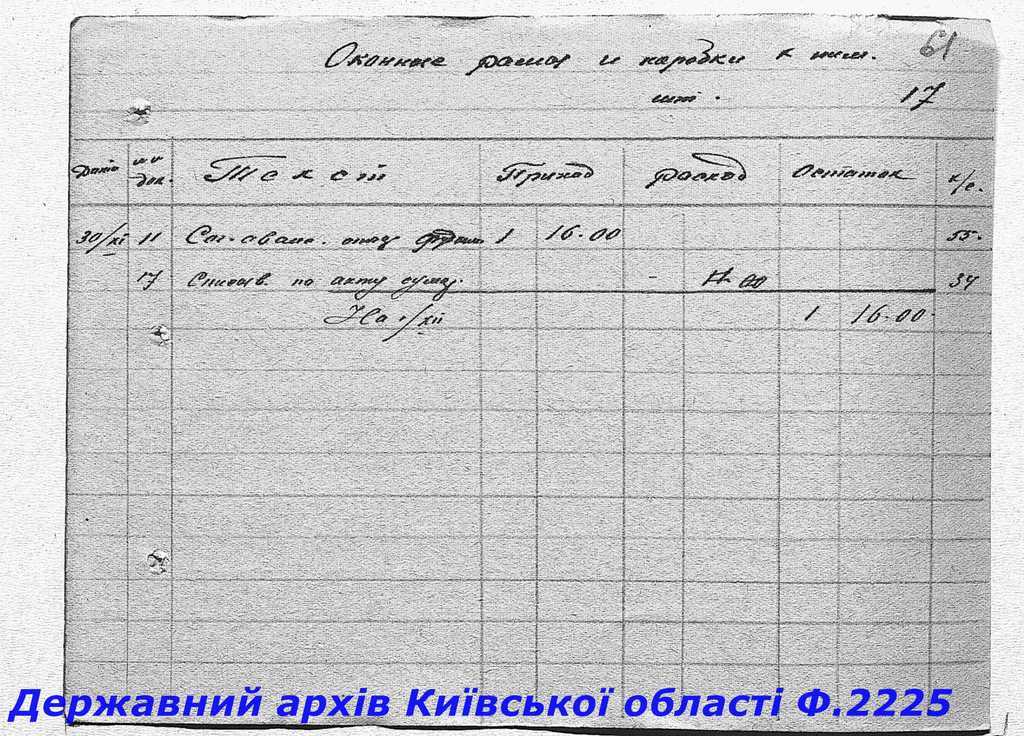 61
Оконные рамы и каробки к ним.
шт. 17
Дата № № док. Текст Приход расход Остаток к/с.
30/XI 11 1 16-00 55-
17 Списыв. по акту сумму. - 34
На 1/XII 1 16-00-
Державний архів Київської області Ф.2225